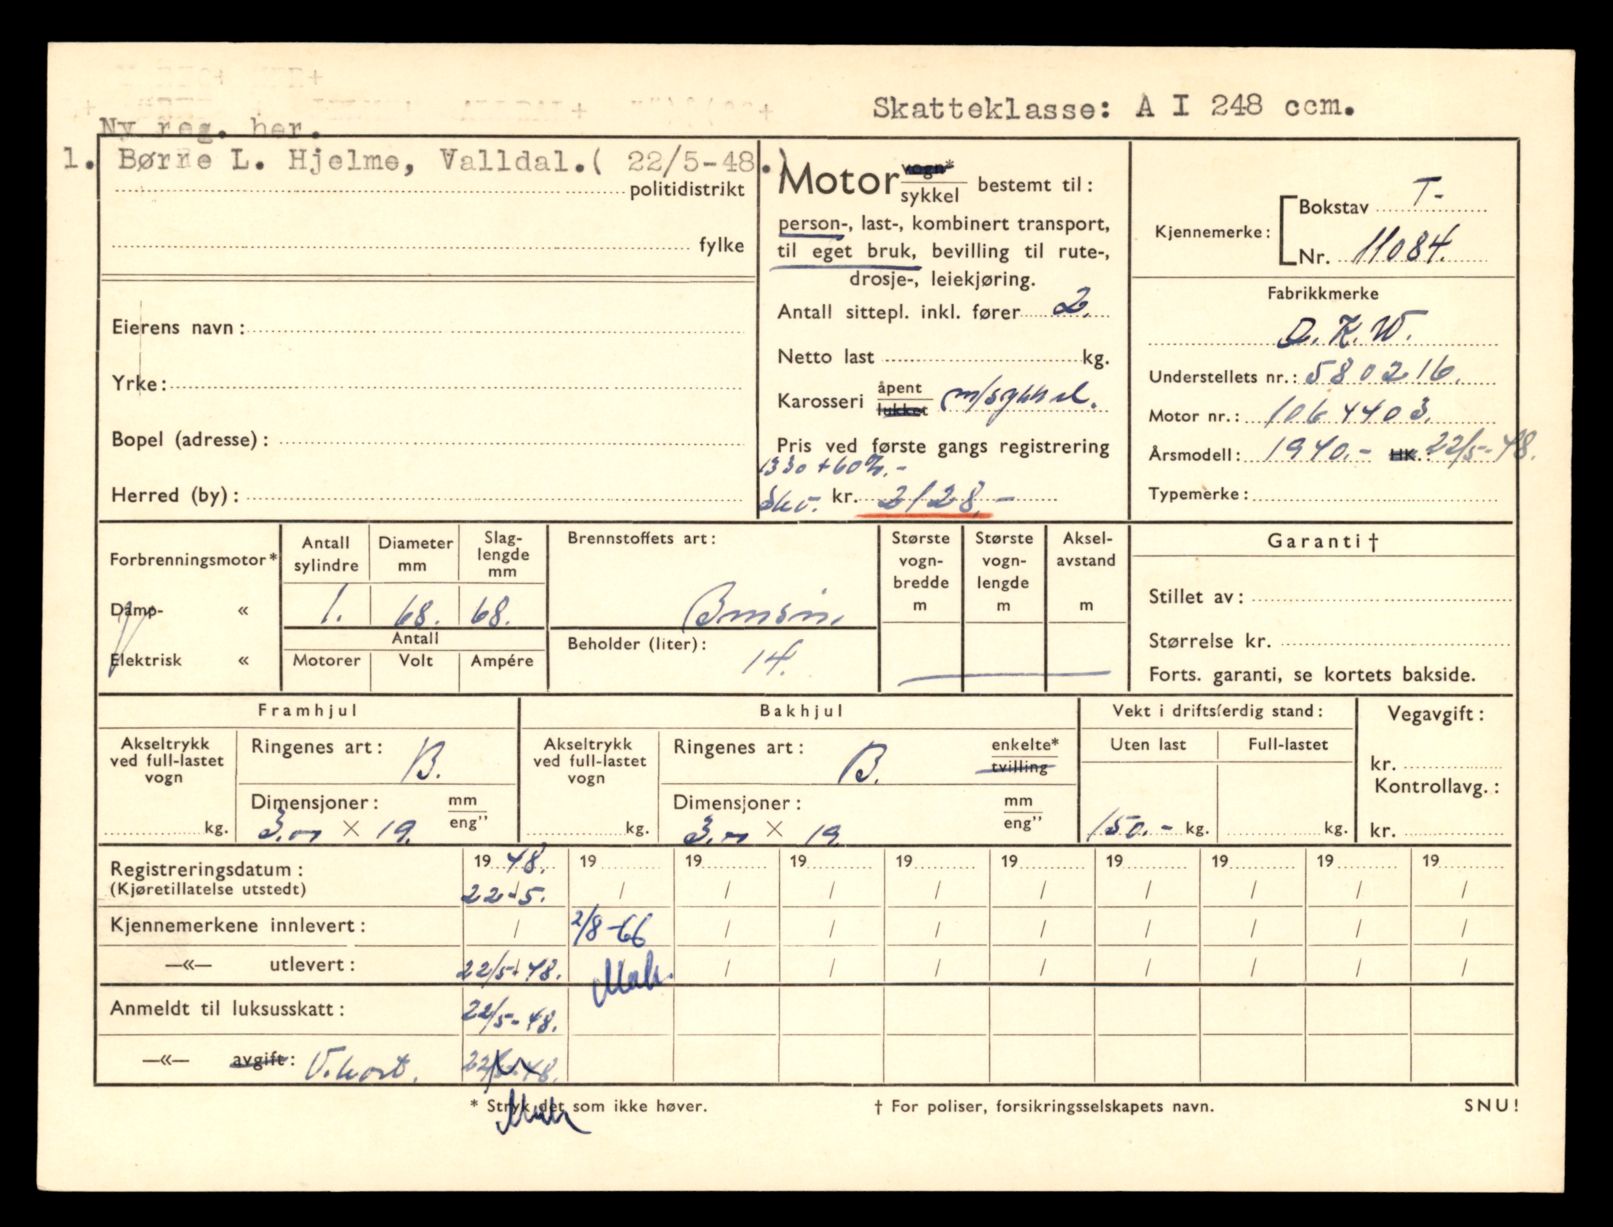 Skatteklasse: A I 248 ccm.
Ny reg. her.
1. Børre L. Hjelme, Valldal.( 22/5-48.)
politidistrikt
fylke
Eierens navn:
Yrke:
Bopel (adresse):
Herred (by):
Motor vogn* sykkel bestemt til:
person-, last-, kombinert transport,
til eget bruk, bevilling til rute-,
drosje-, leiekjøring.
Antall sittepl. inkl. fører 2.
Netto last kg.
Karosseri åpent lukket m/sykkel.
Pris ved første gangs registrering
1330 + 60%.-
kr. 2128.-
Kjennemerke: Bokstav T-
Nr. 11084.
Fabrikkmerke
D.K.W.
Understellets nr.: 580216.
Motor nr.: 1064403.
Årsmodell: 1940.- HK.: 22/5-48.
Typemerke:
Forbrenningsmotor*
Damp- «
Elektrisk «
Antall sylindre
Diameter mm
Slaglengde mm
1. 68. 68.
Antall
Motorer Volt Ampére
Brennstoffets art:
Bensin.
Beholder (liter):
14.
Største vogn-bredde m
Største vogn-lengde m
Aksel-avstand m
Garanti †
Stillet av:
Størrelse kr.
Forts. garanti, se kortets bakside.
Framhjul
Akseltrykk ved full-lastet vogn
kg.
Ringenes art: B.
Dimensjoner: mm eng"
3.00 × 19.
Bakhjul
Akseltrykk ved full-lastet vogn
kg.
Ringenes art: B. enkelte* tvilling
Dimensjoner: mm eng"
3.00 × 19
Vekt i driftsferdig stand:
Uten last Full-lastet
150.- kg. kg.
Vegavgift:
kr.
Kontrollavg.:
kr.
Registreringsdatum: 19 48. 19 19 19 19 19 19 19 19 19
(Kjøretillatelse utstedt) 22/5. / / / / / / / / /
Kjennemerkene innlevert: / 2/8-66 / / / / / / / /
—«— utlevert: 22/5-48. / / / / / / / /
Anmeldt til luksusskatt: 22/5-48.
—«— avgift: V.kort. 22/5-48.
* Stryk det som ikke høver.
† For poliser, forsikringsselskapets navn.
SNU!